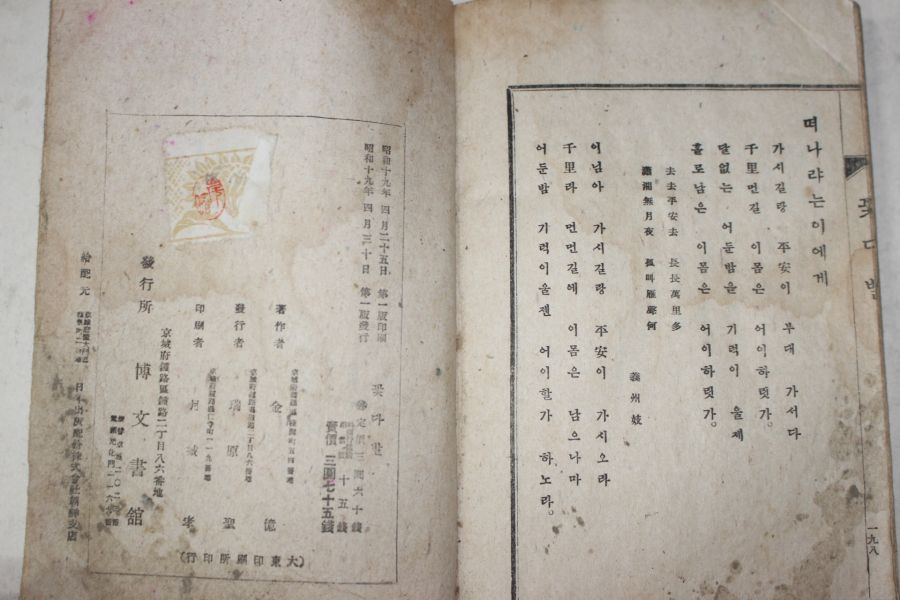 떠나랴는이에게
가시길랑 平安이 부대 가서다
千里먼길 이몸은 어이하렷가。
달없는 어둔밤을 기럭이 울제
홀로남은 이몸은 어이하렷가。
去去平安去 長長萬里多
瀟湘無月夜 孤叫雁聲何
義州妓
어님아 가시길랑 平安이 가시소라
千里라 먼먼길에 이몸은 남으나마
어둔밤 기럭이울젠 어이할가 하노라。
꽃다발
一九八
昭和十九年 四月二十五日 第一版印刷
昭和十九年 四月三十日 第一版發行
꽃다발
定價 三圓六十錢
十五錢
賣價 三圓七十五錢
著作者 金 億
發行者 瑞原 聖
印刷者 月城 孝
(大東印刷所印行)
京城府鍾路區鍾路二丁目八六番地
發行所 博文書館
給配元 日本出版配給株式會社朝鮮支店